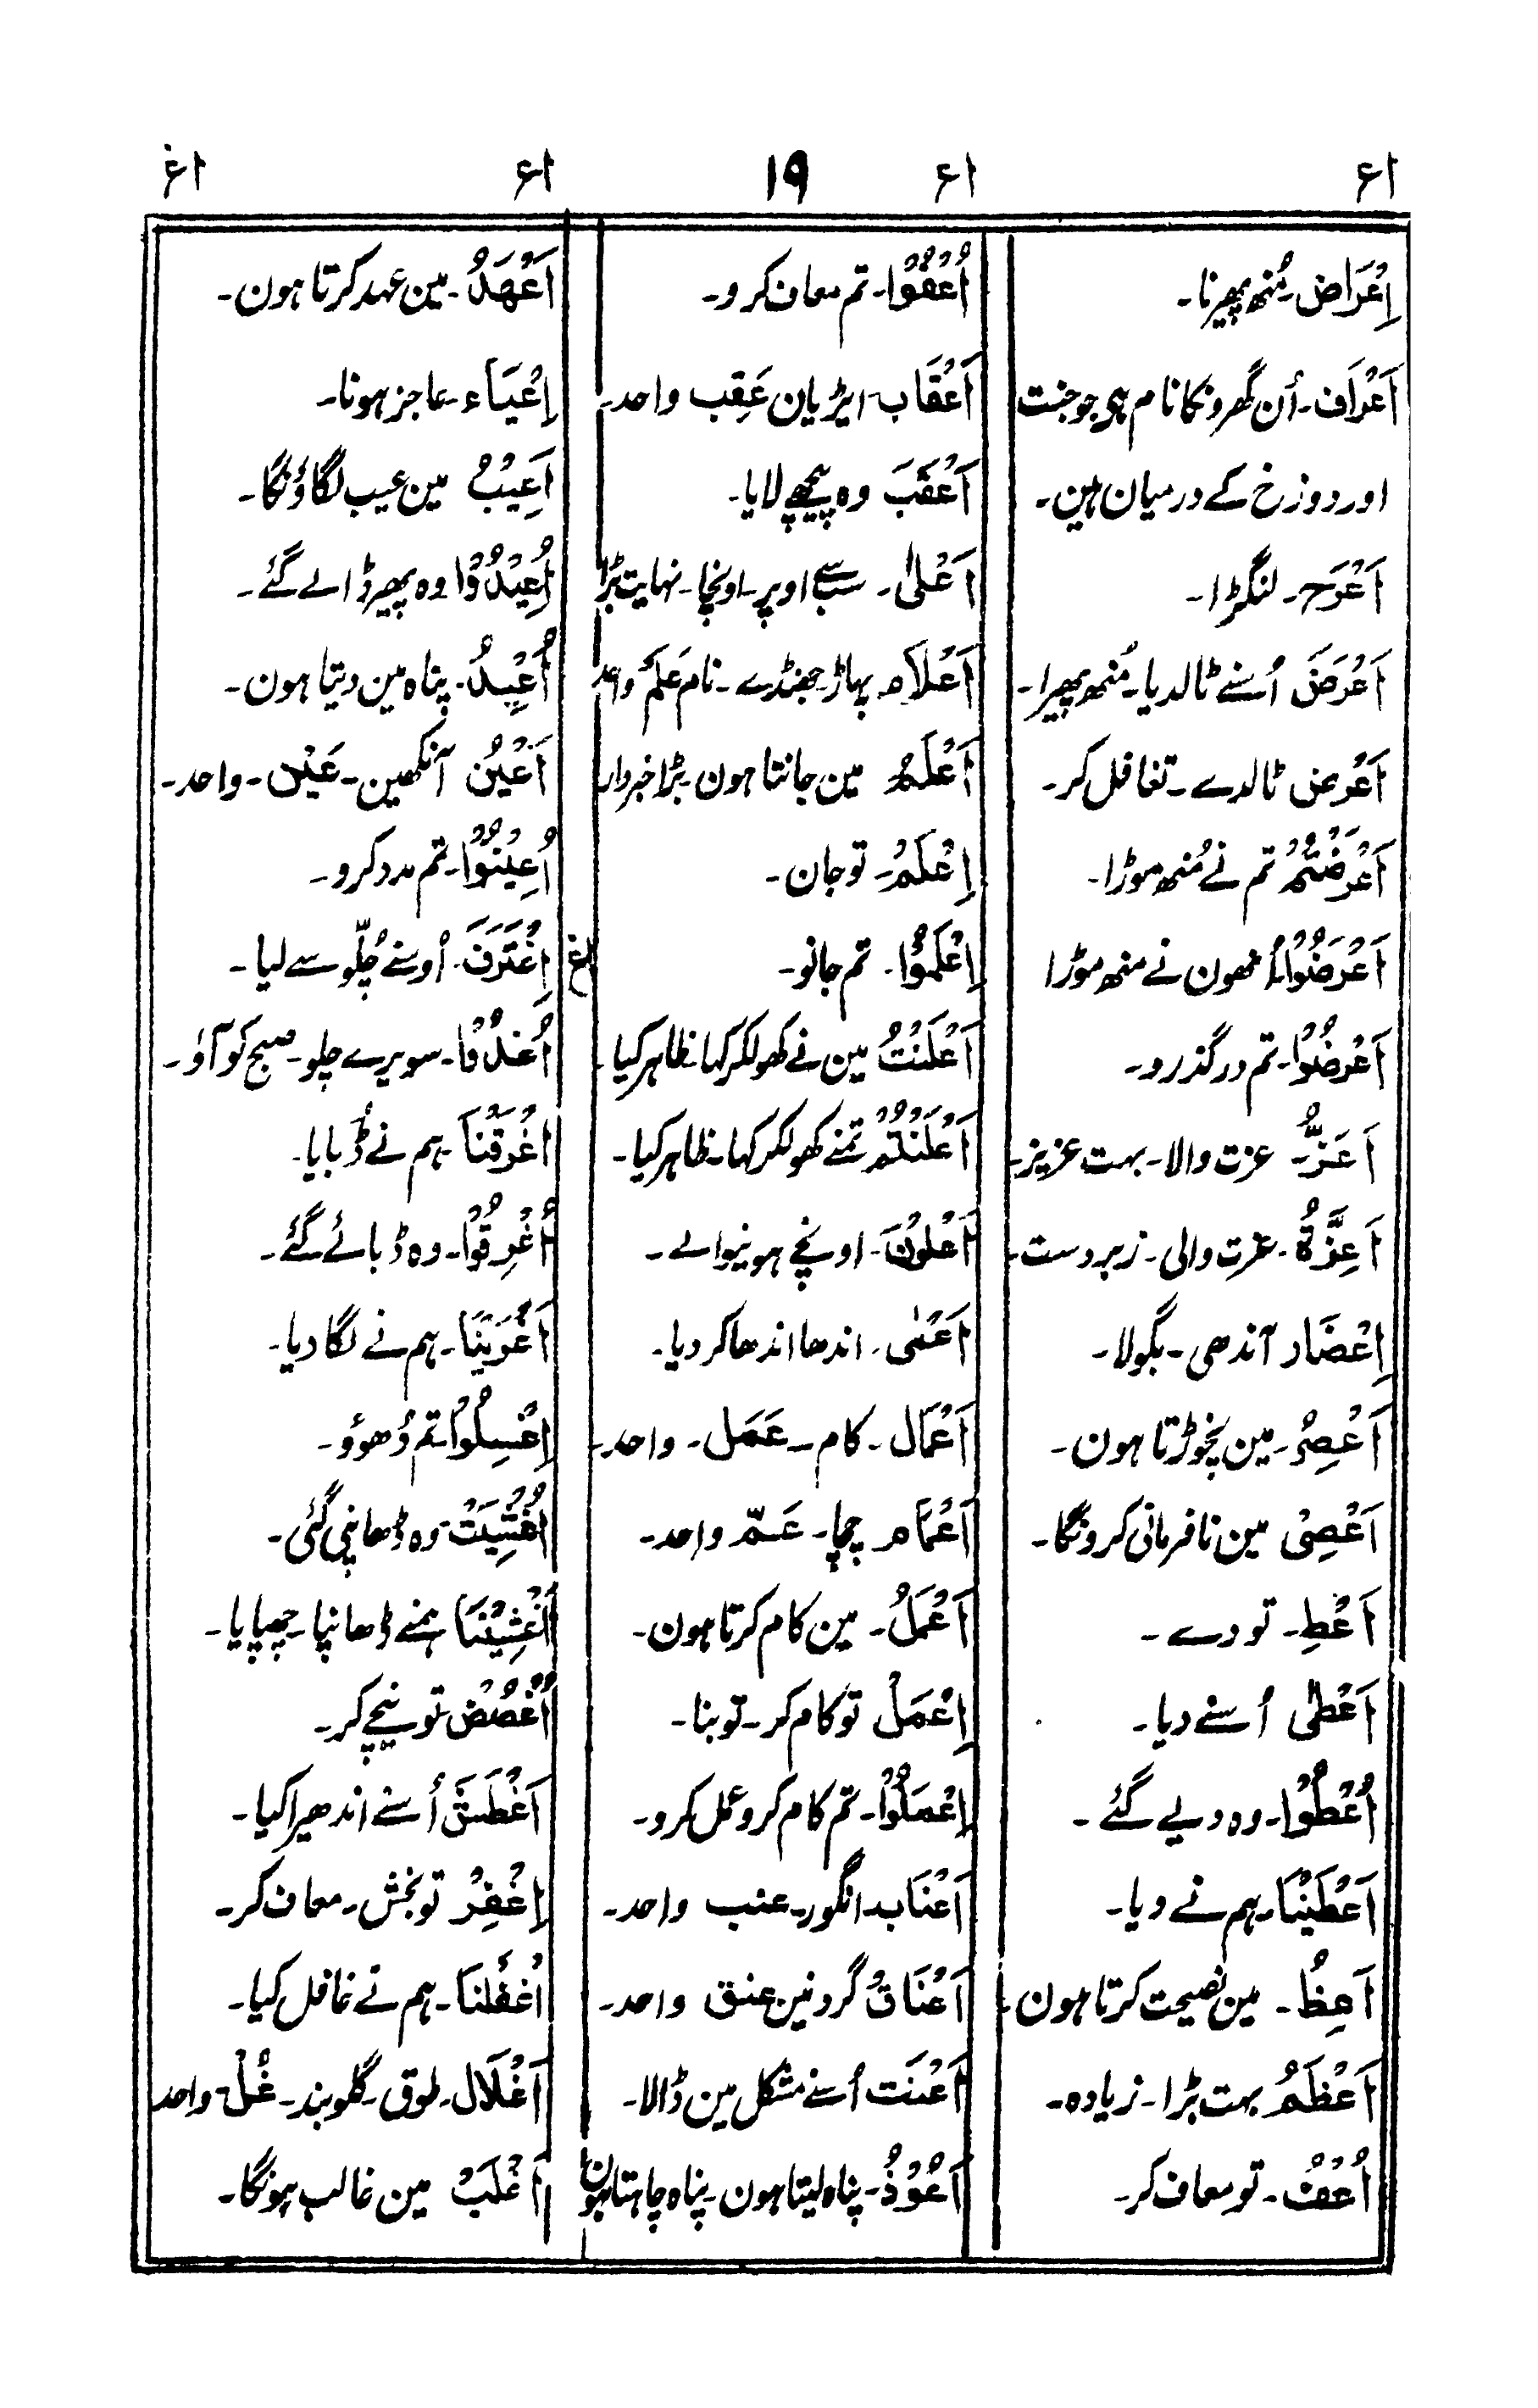 اع
اع
١٩
اع
اغ
اِعْرَاض۔ مُنھ پھیرنا۔
اَعْرَاف۔ اُن گھرونکا نام ہی جو جنت
اور دوزخ کے درمیان ہین۔
اَعْرَج۔ لنگڑا۔
اَعْرَضَ اُسنے ٹالدیا۔ مُنھ پھیرا۔
اَعْرِض ٹالدے۔ تغافل کر۔
اَعْرَضْتُمْ تم نے مُنھ موڑا۔
اَعْرَضُوْا اُنھون نے منھ موڑا
اَعْرِضُوْا۔ تم درگذرو۔
اَعَزُّ۔ عزت والا۔ بہت عزیز۔
اَعِزَّةٌ۔ عزت والی۔ زبردست۔
اِعْصَار آندھی۔ بگولا۔
اَعْصِرُ۔ مین نچوڑتا ہون۔
اَعْصِیْ مین نافرمانی کرونگا۔
اَعْطِ۔ تو دے۔
اَعْطٰی اُسنے دیا۔
اُعْطُوْا۔ وہ دیے گئے۔
اَعْطَیْنَا۔ ہم نے دیا۔
اَعِظُ۔ مین نصیحت کرتا ہون۔
اَعْظَمُ بہت بڑا۔ زیادہ۔
اُعْفُ۔ تو معاف کر۔
اُعْفُوْا۔ تم معاف کرو۔
اَعْقَاب۔ ایڑیان عَقِب واحد۔
اَعْقَبَ وہ پیچھے لایا۔
اَعْلٰی۔ سب سے اوپر۔ اونچا۔ نہایت بڑا
اَعْلَام پہاڑ۔ جھنڈے۔ نام عَلَم واحد
اَعْلَمُ مین جانتا ہون۔ بڑا خبردار
اِعْلَمْ۔ تو جان۔
اِعْلَمُوْا۔ تم جانو۔
اَعْلَنْتُ مین نے کھولکر کہا۔ ظاہر کیا۔
اَعْلَنْتُمْ تمنے کھولکر کہا۔ ظاہر کیا۔
اَعْلَوْنَ۔ اونچے ہونیوالے۔
اَعْمٰی۔ اندھا اندھا کر دیا۔
اَعْمَال۔ کام۔ عَمَل۔ واحد۔
اَعْمَام چچا۔ عَمّ واحد۔
اَعْمَلُ۔ مین کام کرتا ہون۔
اِعْمَلْ تو کام کر۔ تو بنا۔
اِعْمَلُوْا۔ تم کام کرو عمل کرو۔
اَعْنَاب۔ انگور۔ عنب واحد۔
اَعْنَاق گردنین عنق واحد۔
اَعْنَت اُسنے مشکل مین ڈالا۔
اَعُوْذُ۔ پناہ لیتا ہون۔ پناہ چاہتا ہون
اَعْهَدُ۔ مین عہد کرتا ہون۔
اِعْیَاء۔ عاجز ہونا۔
اَعِیْبُ مین عیب لگاؤنگا۔
اُعِیْدُوْا وہ پھیر ڈالے گئے۔
اُعِیْذُ۔ پناہ مین دیتا ہون۔
اَعْیُن آنکھین۔ عَیْن۔ واحد۔
اُعِیْنُوْا۔ تم مدد کرو۔
اغ
اِغْتَرَفَ۔ اُوسنے چُلّو سے لیا۔
اُغْدُوْا۔ سویرے چلو۔ صبح کو آؤ۔
اغْرَقْنَا۔ ہم نے ڈُبایا۔
اُغْرِقُوْا۔ وہ ڈبائے گئے۔
اَغْرَیْنَا۔ ہم نے لگا دیا۔
اِغْسِلُوْا تم دُھوؤ۔
اُغْشِیَتْ۔ وہ ڈھانپی گئی۔
اَغْشَیْنَا ہمنے ڈھانپا۔ چھپایا۔
اُغْضُضْ تو نیچے کر۔
اَغْطَشَ اُسنے اندھیرا کیا۔
اِغْفِرْ تو بخش۔ معاف کر۔
اَغْفَلْنَا۔ ہم نے غافل کیا۔
اَغْلَال۔ طوق۔ گلوبند۔ غُلّ۔ واحد
اَغْلَبُ مین غالب ہونگا۔